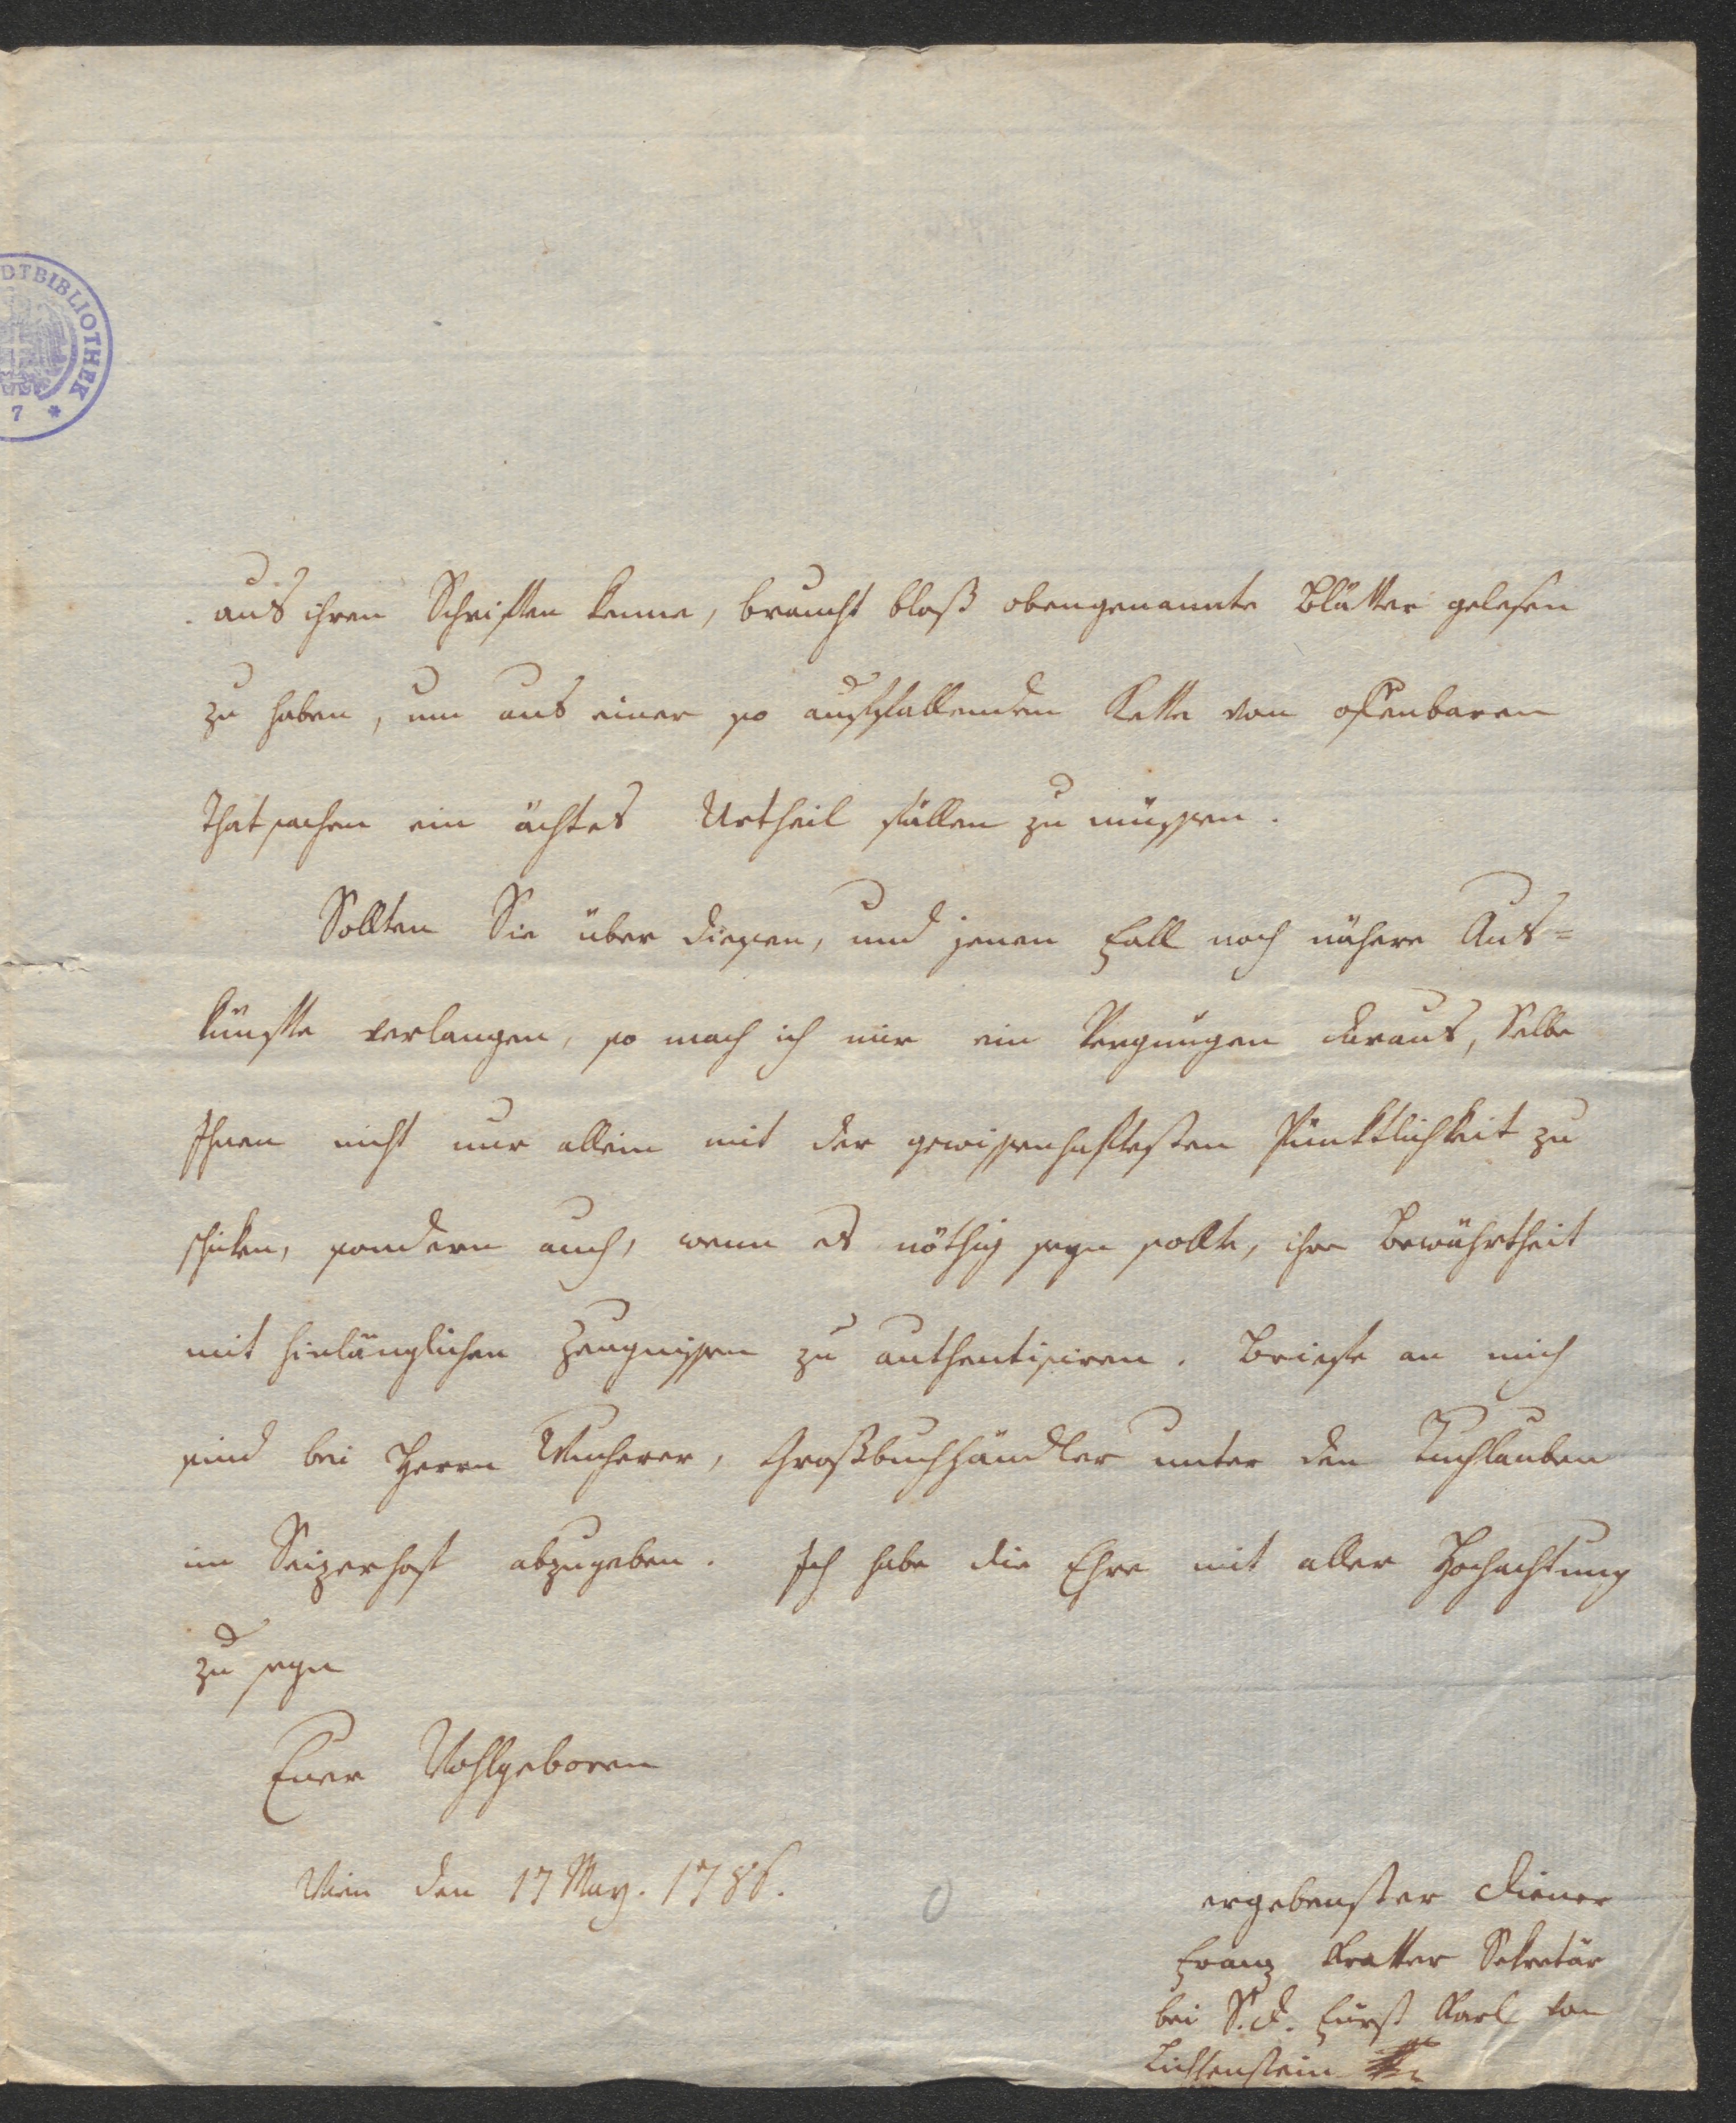 DTBIBLIOTHEK
7 *
aus ihren Schriften kenne, braucht bloß obengenannte Blätter gelesen
zu haben, um aus einer so auffallenden Kette von offenbaren
Thatsachen ein ächtes Urtheil fällen zu müssen.
Sollten Sie über diesen, und jenen Fall noch nähere Aus=
künfte verlangen, so mach ich mir ein Vergnügen daraus, Selbe
Ihnen nicht nur allein mit der gewissenhaftesten Pünktlichkeit zu
schicken, sondern auch, wenn es nöthig seyn sollte, ihre Bewährtheit
mit hinlänglichen Zeugnissen zu authentisiren. Briefe an mich
sind bei Herrn Wucherer, Großbuchhändler unter den Tuchlauben
im Seizerhof abzugeben. Ich habe die Ehre mit aller Hochachtung
zu seyn
Euer Wohlgeboren
Wien den 17 May. 1786.
ergebenster Diener
Franz Kratter Sekretär
bei S. d. Fürst Karl von
Lichtenstein